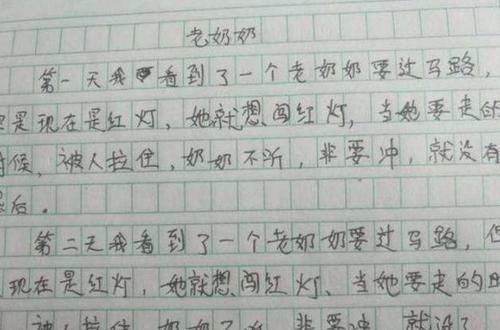 老奶奶
第一天我看到了一个老奶奶要过马路,
是现在是红灯,她就想闯红灯,当她要走的
候,被人拉住,奶奶不听,非要冲,就没有
后。
第二天我看到了一个老奶奶要过马路,但
现在是红灯,她就想闯红灯、当她要走的
被人拉住 奶奶 非要冲 就没了